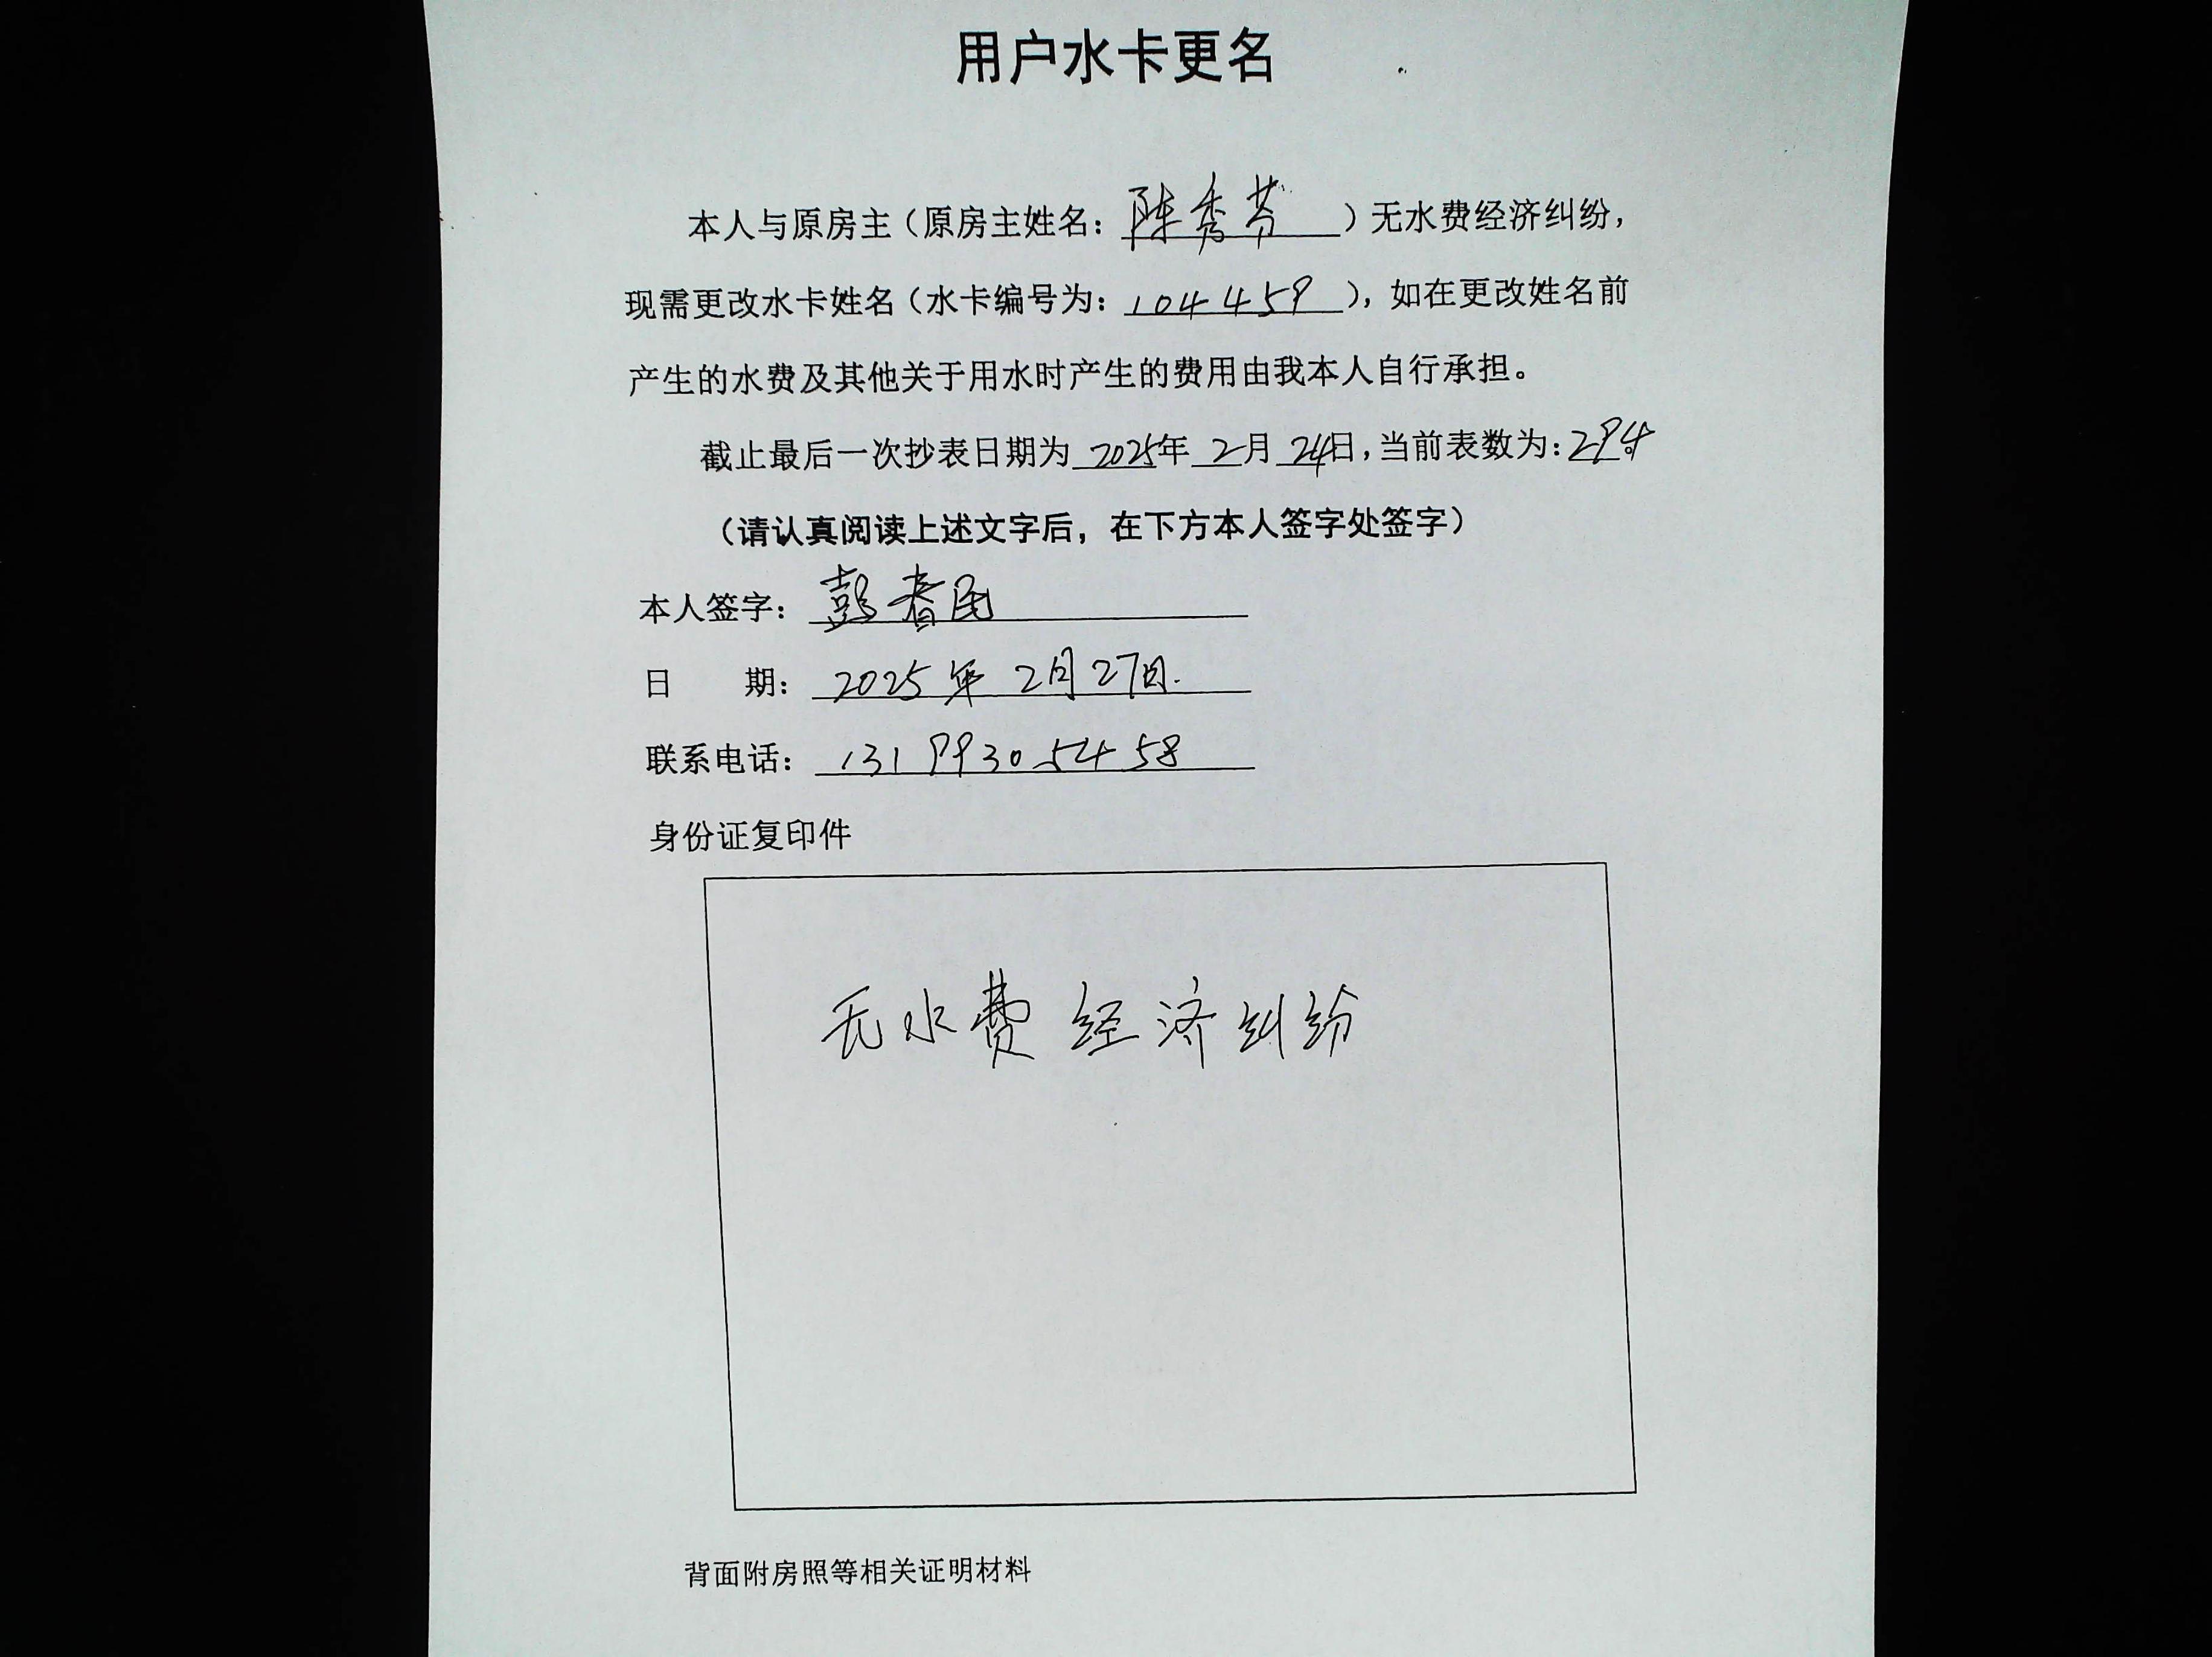 用户水卡更名
本人与原房主（原房主姓名：陈秀芬）无水费经济纠纷，
现需更改水卡姓名（水卡编号为：104459），如在更改姓名前
产生的水费及其他关于用水时产生的费用由我本人自行承担。
截止最后一次抄表日期为2025年2月24日，当前表数为：294
（请认真阅读上述文字后，在下方本人签字处签字）
本人签字：彭春民
日　　期：2025年2月27日.
联系电话：13199305458
身份证复印件
无水费经济纠纷
背面附房照等相关证明材料